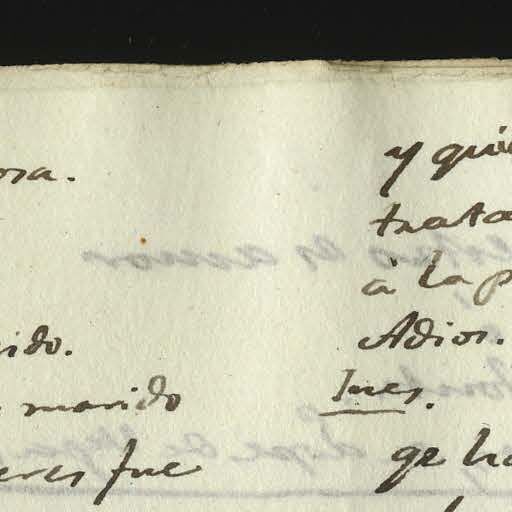 osa.
ido.
marido
eres fue
y qui
trata
à la p
Adios.
Ines.
qe ha